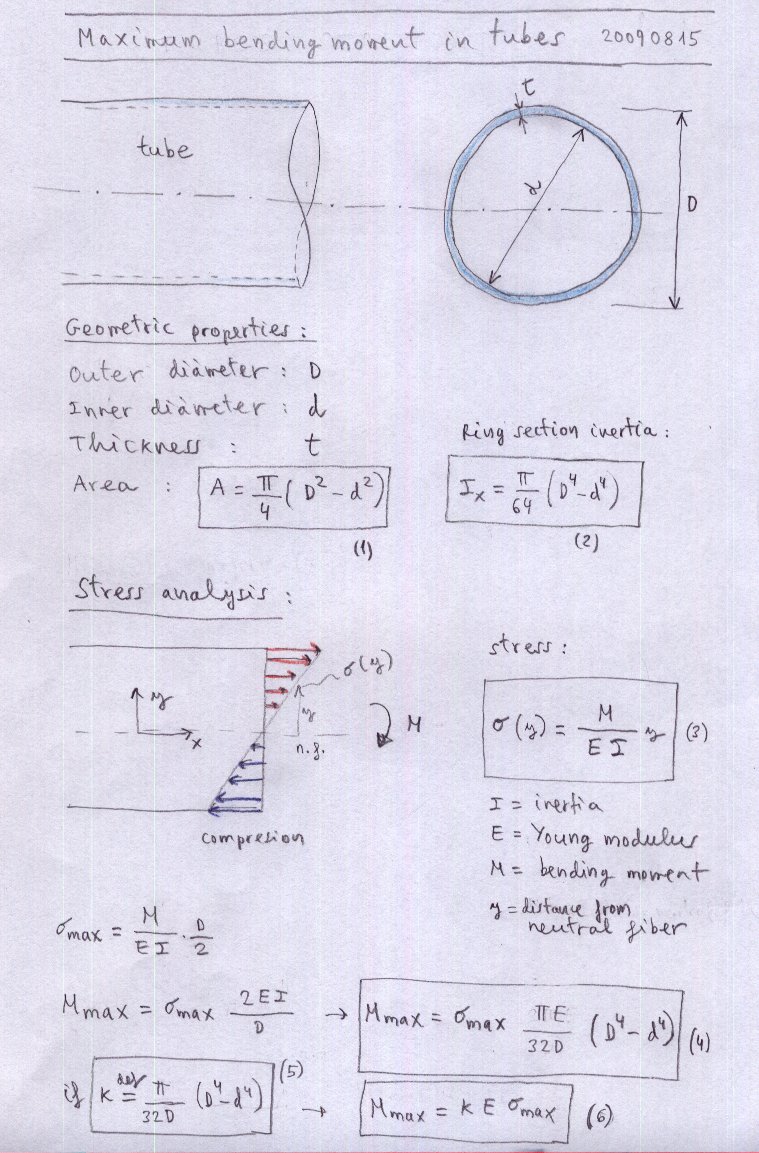 Maximum bending moment in tubes 20090815
t
tube
d
D
Geometric properties:
Outer diameter: D
Inner diameter: d
Thickness : t
Ring section inertia:
Area : A = π/4 (D² - d²)
(1)
Ix = π/64 (D⁴ - d⁴)
(2)
Stress analysis:
σ(y)
y
x
y
n.f.
M
compresion
stress:
σ(y) = M/(E I) y (3)
I = inertia
E = Young modulus
M = bending moment
y = distance from
neutral fiber
σmax = M/(E I) · D/2
Mmax = σmax 2EI/D → Mmax = σmax πE/32D (D⁴ - d⁴) (4)
if K def= π/32D (D⁴ - d⁴) (5) → Mmax = K E σmax (6)